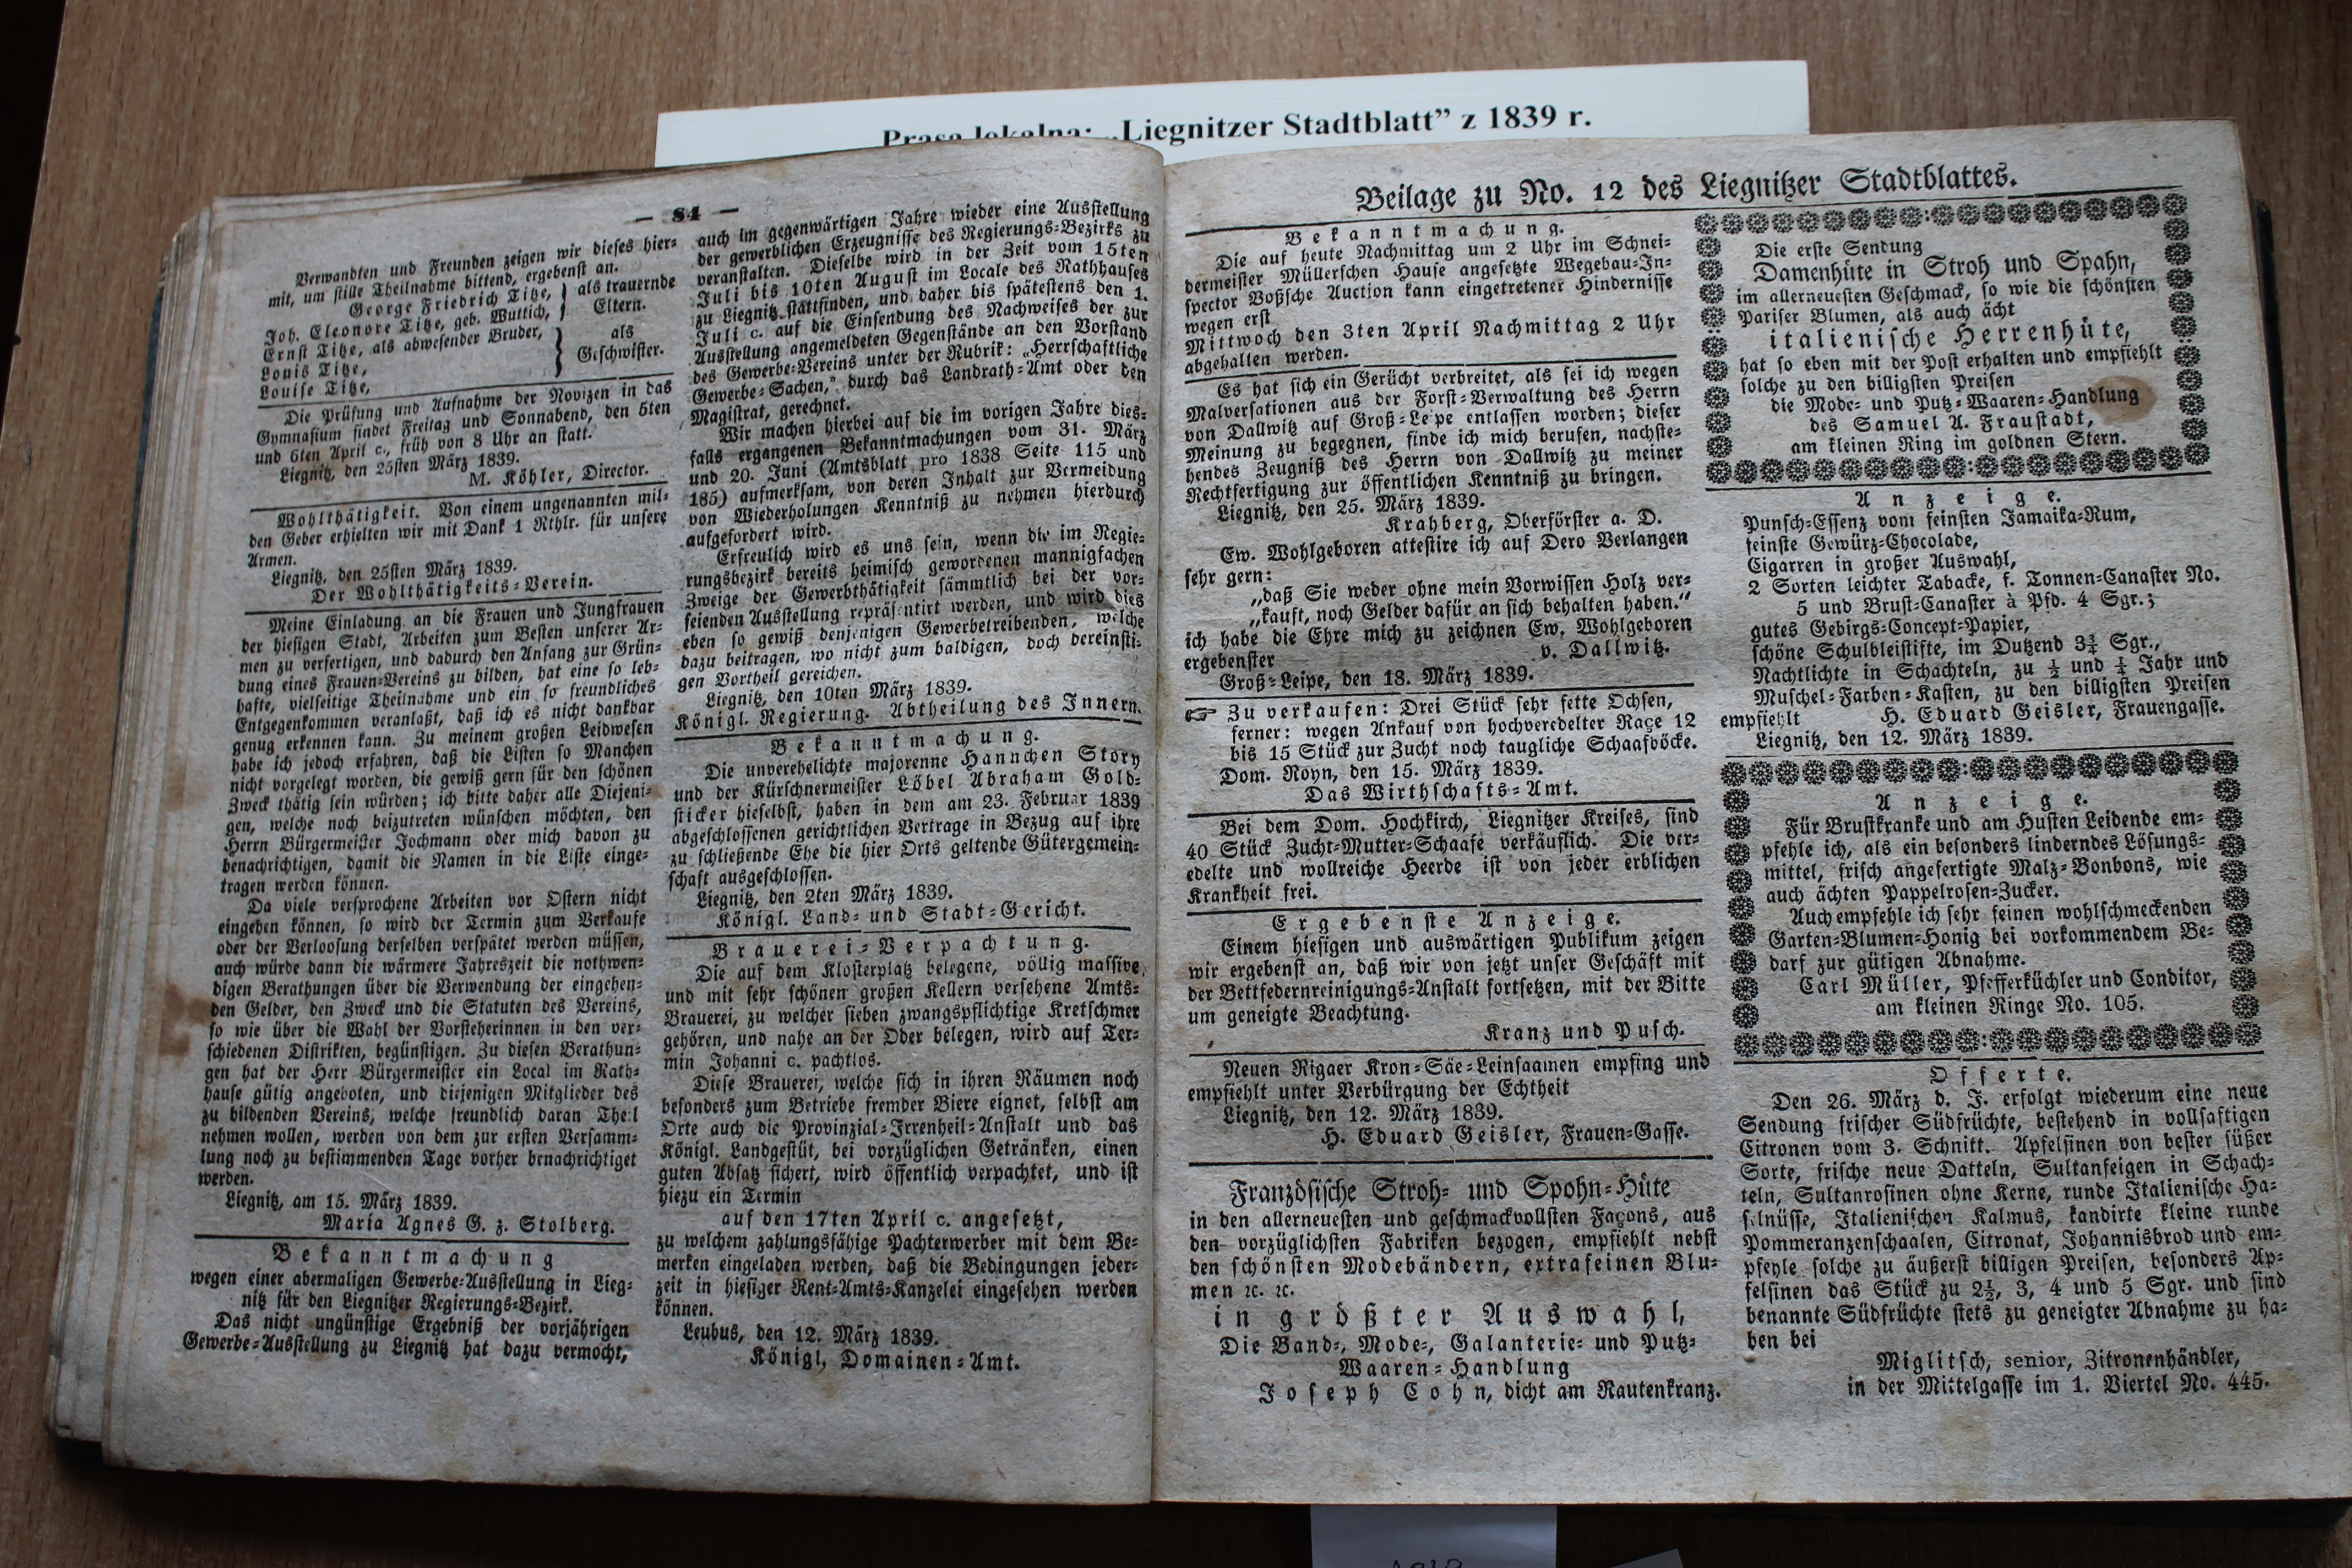 Prasa lokalna: „Liegnitzer Stadtblatt” z 1839 r.
— 84 —
Verwandten und Freunden zeigen wir dieses hier-
mit, um stille Theilnahme bittend, ergebenst an.
George Friedrich Titze, } als trauernde
Joh. Eleonore Titze, geb. Wuttich, } Eltern.
Ernst Titze, als abwesender Bruder, } als
Louis Titze, } Geschwister.
Louise Titze,
Die Prüfung und Aufnahme der Novizen in das
Gymnasium findet Freitag und Sonnabend, den 5ten
und 6ten April c., früh von 8 Uhr an statt.
Liegnitz, den 25sten März 1839.
M. Köhler, Director.
Wohlthätigkeit. Von einem ungenannten mil-
den Geber erhielten wir mit Dank 1 Rthlr. für unsere
Armen.
Liegnitz, den 25sten März 1839.
Der Wohlthätigkeits-Verein.
Meine Einladung an die Frauen und Jungfrauen
der hiesigen Stadt, Arbeiten zum Besten unserer Ar-
men zu verfertigen, und dadurch den Anfang zur Grün-
dung eines Frauen-Vereins zu bilden, hat eine so leb-
hafte, vielseitige Theilnahme und ein so freundliches
Entgegenkommen veranlaßt, daß ich es nicht dankbar
genug erkennen kann. Zu meinem großen Leidwesen
habe ich jedoch erfahren, daß die Listen so Manchen
nicht vorgelegt worden, die gewiß gern für den schönen
Zweck thätig sein würden; ich bitte daher alle Diejeni-
gen, welche noch beizutreten wünschen möchten, den
Herrn Bürgermeister Jochmann oder mich davon zu
benachrichtigen, damit die Namen in die Liste einge-
tragen werden können.
Da viele versprochene Arbeiten vor Ostern nicht
eingehen können, so wird der Termin zum Verkaufe
oder der Verloosung derselben verspätet werden müssen,
auch würde dann die wärmere Jahreszeit die nothwen-
digen Berathungen über die Verwendung der eingehen-
den Gelder, den Zweck und die Statuten des Vereins,
so wie über die Wahl der Vorsteherinnen in den ver-
schiedenen Distrikten, begünstigen. Zu diesen Berathun-
gen hat der Herr Bürgermeister ein Local im Rath-
hause gütig angeboten, und diejenigen Mitglieder des
zu bildenden Vereins, welche freundlich daran Theil
nehmen wollen, werden von dem zur ersten Versamm-
lung noch zu bestimmenden Tage vorher benachrichtiget
werden.
Liegnitz, am 15. März 1839.
Maria Agnes G. z. Stolberg.
Bekanntmachung
wegen einer abermaligen Gewerbe-Ausstellung in Lieg-
nitz für den Liegnitzer Regierungs-Bezirk.
Das nicht ungünstige Ergebniß der vorjährigen
Gewerbe-Ausstellung zu Liegnitz hat dazu vermocht,
auch im gegenwärtigen Jahre wieder eine Ausstellung
der gewerblichen Erzeugnisse des Regierungs-Bezirks zu
veranstalten. Dieselbe wird in der Zeit vom 15ten
Juli bis 10ten August im Locale des Rathhauses
zu Liegnitz stattfinden, und daher bis spätestens den 1.
Juli c. auf die Einsendung des Nachweises der zur
Ausstellung angemeldeten Gegenstände an den Vorstand
des Gewerbe-Vereins unter der Rubrik: „Herrschaftliche
Gewerbe-Sachen,” durch das Landrath-Amt oder den
Magistrat, gerechnet.
Wir machen hierbei auf die im vorigen Jahre dies-
falls ergangenen Bekanntmachungen vom 31. März
und 20. Juni (Amtsblatt pro 1838 Seite 115 und
185) aufmerksam, von deren Inhalt zur Vermeidung
von Wiederholungen Kenntniß zu nehmen hierdurch
aufgefordert wird.
Erfreulich wird es uns sein, wenn die im Regie-
rungsbezirk bereits heimisch gewordenen mannigfachen
Zweige der Gewerbthätigkeit sämmtlich bei der vor-
seienden Ausstellung repräsentirt werden, und wird dies
eben so gewiß denjenigen Gewerbetreibenden, welche
dazu beitragen, wo nicht zum baldigen, doch dereinsti-
gen Vortheil gereichen.
Liegnitz, den 10ten März 1839.
Königl. Regierung. Abtheilung des Innern.
Bekanntmachung.
Die unverehelichte majorenne Hannchen Story
und der Kürschnermeister Löbel Abraham Gold-
sticker hieselbst, haben in dem am 23. Februar 1839
abgeschlossenen gerichtlichen Vertrage in Bezug auf ihre
zu schließende Ehe die hier Orts geltende Gütergemein-
schaft ausgeschlossen.
Liegnitz, den 2ten März 1839.
Königl. Land- und Stadt-Gericht.
Brauerei-Verpachtung.
Die auf dem Klosterplatz belegene, völlig massive,
und mit sehr schönen großen Kellern versehene Amts-
Brauerei, zu welcher sieben zwangspflichtige Kretschmer
gehören, und nahe an der Oder belegen, wird auf Ter-
min Johanni c. pachtlos.
Diese Brauerei, welche sich in ihren Räumen noch
besonders zum Betriebe fremder Biere eignet, selbst am
Orte auch die Provinzial-Irrenheil-Anstalt und das
Königl. Landgestüt, bei vorzüglichen Getränken, einen
guten Absatz sichert, wird öffentlich verpachtet, und ist
hiezu ein Termin
auf den 17ten April c. angesetzt,
zu welchem zahlungsfähige Pachterwerber mit dem Be-
merken eingeladen werden, daß die Bedingungen jeder-
zeit in hiesiger Rent-Amts-Kanzelei eingesehen werden
können.
Leubus, den 12. März 1839.
Königl. Domainen-Amt.
Beilage zu No. 12 des Liegnitzer Stadtblattes.
Bekanntmachung.
Die auf heute Nachmittag um 2 Uhr im Schnei-
dermeister Müllerschen Hause angesetzte Wegebau-In-
spector Voßsche Auction kann eingetretener Hindernisse
wegen erst
Mittwoch den 3ten April Nachmittag 2 Uhr
abgehalten werden.
Es hat sich ein Gerücht verbreitet, als sei ich wegen
Malversationen aus der Forst-Verwaltung des Herrn
von Dallwitz auf Groß-Leipe entlassen worden; dieser
Meinung zu begegnen, finde ich mich berufen, nachste-
hendes Zeugniß des Herrn von Dallwitz zu meiner
Rechtfertigung zur öffentlichen Kenntniß zu bringen.
Liegnitz, den 25. März 1839.
Krahberg, Oberförster a. D.
Ew. Wohlgeboren attestire ich auf Dero Verlangen
sehr gern:
„daß Sie weder ohne mein Vorwissen Holz ver-
„kauft, noch Gelder dafür an sich behalten haben.“
ich habe die Ehre mich zu zeichnen Ew. Wohlgeboren
ergebenster v. Dallwitz.
Groß-Leipe, den 18. März 1839.
☞ Zu verkaufen: Drei Stück sehr fette Ochsen,
ferner: wegen Ankauf von hochveredelter Raçe 12
bis 15 Stück zur Zucht noch taugliche Schaafböcke.
Dom. Royn, den 15. März 1839.
Das Wirthschafts-Amt.
Bei dem Dom. Hochkirch, Liegnitzer Kreises, sind
40 Stück Zucht-Mutter-Schaafe verkäuflich. Die ver-
edelte und wollreiche Heerde ist von jeder erblichen
Krankheit frei.
Ergebenste Anzeige.
Einem hiesigen und auswärtigen Publikum zeigen
wir ergebenst an, daß wir von jetzt unser Geschäft mit
der Bettfedernreinigungs-Anstalt fortsetzen, mit der Bitte
um geneigte Beachtung.
Kranz und Pusch.
Neuen Rigaer Kron-Säe-Leinsaamen empfing und
empfiehlt unter Verbürgung der Echtheit
Liegnitz, den 12. März 1839.
H. Eduard Geisler, Frauen-Gasse.
Französische Stroh- und Spohn-Hüte
in den allerneuesten und geschmackvollsten Façons, aus
den vorzüglichsten Fabriken bezogen, empfiehlt nebst
den schönsten Modebändern, extrafeinen Blu-
men ꝛc. ꝛc.
in größter Auswahl,
Die Band-, Mode-, Galanterie- und Putz-
Waaren-Handlung
Joseph Cohn, dicht am Rautenkranz.
Die erste Sendung
Damenhüte in Stroh und Spahn,
im allerneuesten Geschmack, so wie die schönsten
Pariser Blumen, als auch ächt
italienische Herrenhüte,
hat so eben mit der Post erhalten und empfiehlt
solche zu den billigsten Preisen
die Mode- und Putz-Waaren-Handlung
des Samuel A. Fraustadt,
am kleinen Ring im goldnen Stern.
Anzeige.
Punsch-Essenz vom feinsten Jamaika-Rum,
feinste Gewürz-Chocolade,
Cigarren in großer Auswahl,
2 Sorten leichter Tabacke, f. Tonnen-Canaster No.
5 und Brust-Canaster à Pfd. 4 Sgr.;
gutes Gebirgs-Concept-Papier,
schöne Schulbleistifte, im Dutzend 3¾ Sgr.,
Nachtlichte in Schachteln, zu ½ und ¼ Jahr und
Muschel-Farben-Kasten, zu den billigsten Preisen
empfiehlt H. Eduard Geisler, Frauengasse.
Liegnitz, den 12. März 1839.
Anzeige.
Für Brustkranke und am Husten Leidende em-
pfehle ich, als ein besonders linderndes Lösungs-
mittel, frisch angefertigte Malz-Bonbons, wie
auch ächten Pappelrosen-Zucker.
Auch empfehle ich sehr feinen wohlschmeckenden
Garten-Blumen-Honig bei vorkommendem Be-
darf zur gütigen Abnahme.
Carl Müller, Pfefferküchler und Conditor,
am kleinen Ringe No. 105.
Offerte.
Den 26. März d. J. erfolgt wiederum eine neue
Sendung frischer Südfrüchte, bestehend in vollsaftigen
Citronen vom 3. Schnitt. Apfelsinen von bester süßer
Sorte, frische neue Datteln, Sultanfeigen in Schach-
teln, Sultanrosinen ohne Kerne, runde Italienische Ha-
selnüsse, Italienischen Kalmus, kandirte kleine runde
Pommeranzenschaalen, Citronat, Johannisbrod und em-
pfehle solche zu äußerst billigen Preisen, besonders Ap-
felsinen das Stück zu 2½, 3, 4 und 5 Sgr. und sind
benannte Südfrüchte stets zu geneigter Abnahme zu ha-
ben bei
Miglitsch, senior, Zitronenhändler,
in der Mittelgasse im 1. Viertel No. 445.